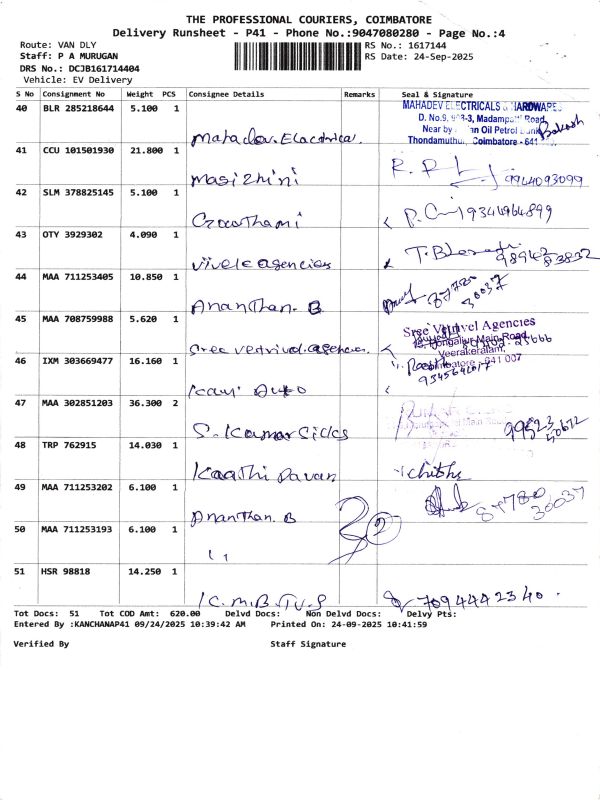 THE PROFESSIONAL COURIERS, COIMBATORE
Delivery Runsheet - P41 - Phone No.:9047080280 - Page No.:4
Route: VAN DLY
RS No.: 1617144
Staff: P A MURUGAN
RS Date: 24-Sep-2025
DRS No.: DCJB161714404
Vehicle: EV Delivery
S No Consignment No Weight PCS Consignee Details Remarks Seal & Signature
40 BLR 285218644 5.100 1
MAHADEV ELECTRICALS & HARDWARE
D. No.9, Madampatti Road,
Near by Oil Petrol Bunk
Thondamuthur, Coimbatore - 641
Mahadev Electrical.
41 CCU 101501930 21.800 1
Masizhini 9944093099
42 SLM 378825145 5.100 1
Gowthami 9344964899
43 OTY 3929302 4.090 1
Vivek agencies
44 MAA 711253405 10.850 1
Ananthan. B 87780 30037
45 MAA 708759988 5.620 1
Sree Vetrivel Agencies
Main Road,
Veerakeralam,
Coimbatore - 641 007
Sree vetrivel. agencies.
46 IXM 303669477 16.160 1
Kavi Auto
47 MAA 302851203 36.300 2
S. Kumar Silks 99523 40672
48 TRP 762915 14.030 1
49 MAA 711253202 6.100 1
Ananthan. B 87780 30037
50 MAA 711253193 6.100 1
2
51 HSR 98818 14.250 1
K.M.B. TVS 7094442340.
Tot Docs: 51 Tot COD Amt: 620.00 Delvd Docs: Non Delvd Docs: Delvy Pts:
Entered By :KANCHANAP41 09/24/2025 10:39:42 AM Printed On: 24-09-2025 10:41:59
Verified By Staff Signature